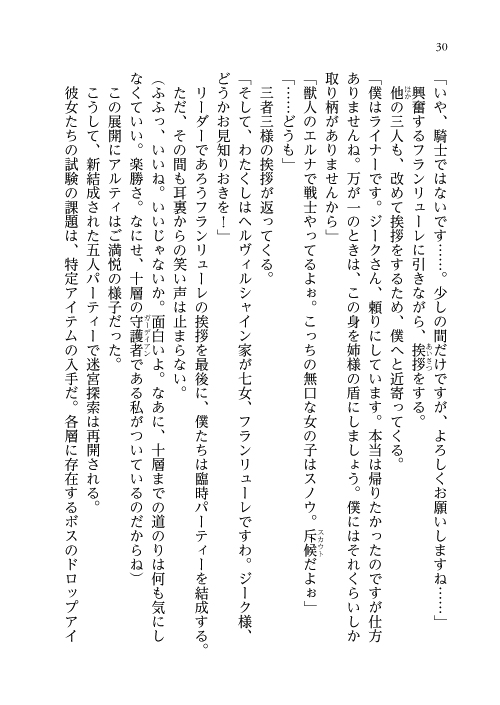 30
「いや、騎士ではないです……。少しの間だけですが、よろしくお願いしますね……」
興奮するフランリューレに引きながら、挨拶をする。
他の三人も、改めて挨拶をするため、僕へと近寄ってくる。
「僕はライナーです。ジークさん、頼りにしています。本当は帰りたかったのですが仕方
ありませんね。万が一のときは、この身を姉様の盾にしましょう。僕にはそれくらいしか
取り柄がありませんから」
「獣人のエルナで戦士やってるよぉ。こっちの無口な女の子はスノウ。斥候だよぉ」
「……どうも」
三者三様の挨拶が返ってくる。
「そして、わたくしはヘルヴィルシャイン家が七女、フランリューレですわ。ジーク様、
どうかお見知りおきを！」
リーダーであろうフランリューレの挨拶を最後に、僕たちは臨時パーティーを結成する。
ただ、その間も耳裏からの笑い声は止まらない。
（ふふっ、いいね。いいじゃないか。面白いよ。なあに、十層までの道のりは何も気にし
なくていい。楽勝さ。なにせ、十層の守護者である私がついているのだからね）
この展開にアルティはご満悦の様子だった。
こうして、新結成された五人パーティーで迷宮探索は再開される。
彼女たちの試験の課題は、特定アイテムの入手だ。各層に存在するボスのドロップアイ